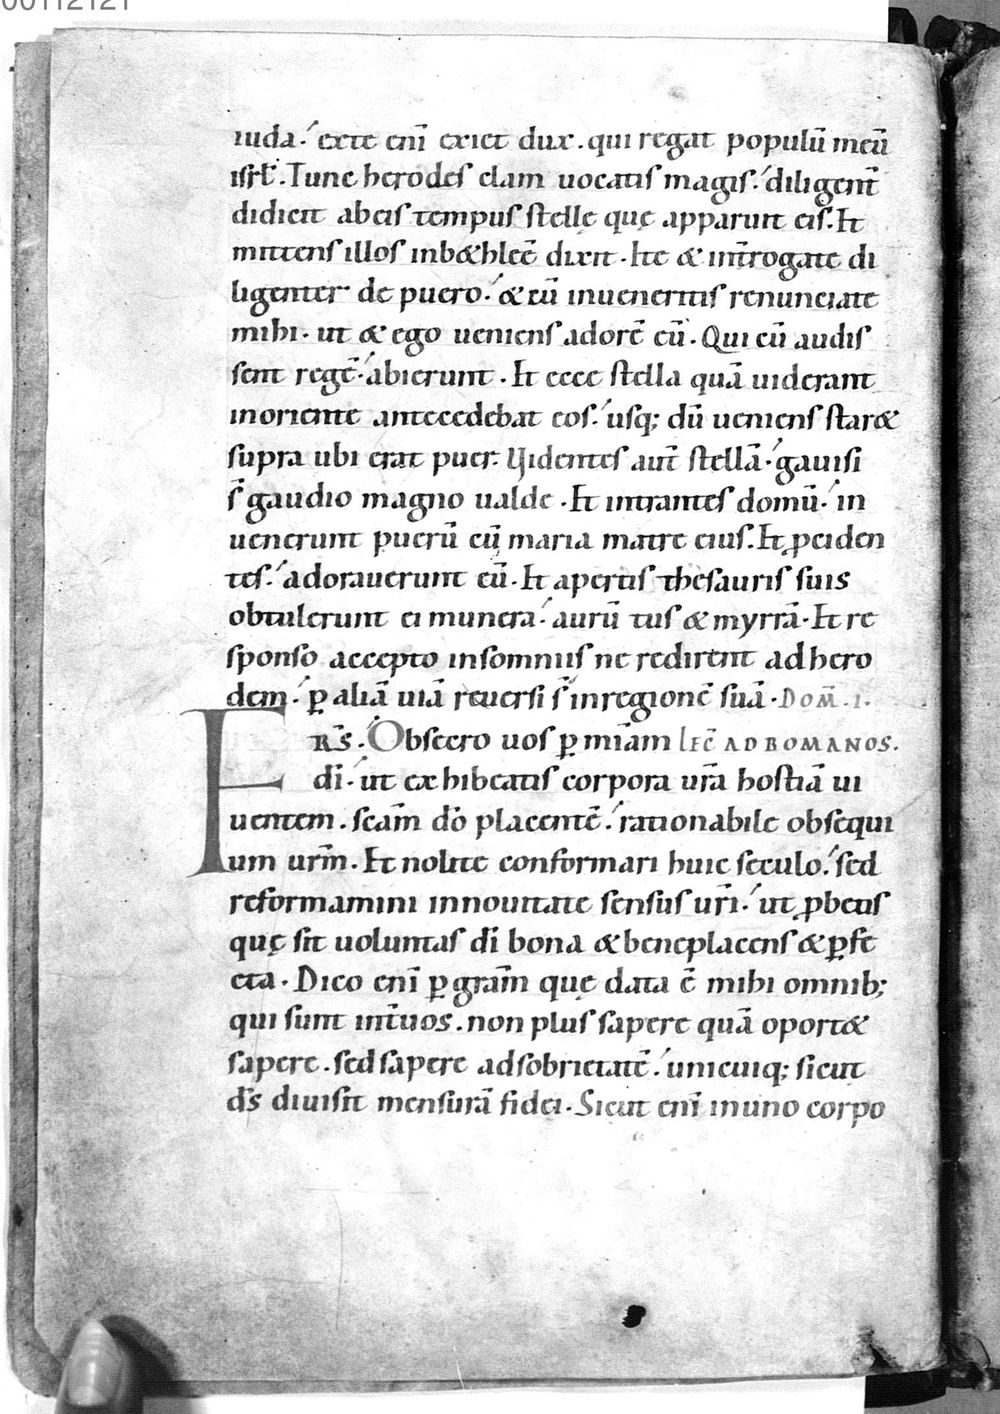 00112121
iuda·́ exte eni̅ exiet dux. qui regat populu̅ meu̅
isrł. Tunc herodes clam uocatis magis·́ diligent̅
didicit ab eis tempus stelle que̜ apparuit eis. Et
mittens illos in b&hlee̅ dixit. Ite & int̅rogate di
ligenter de puero·́ & cu̅ inueneritis renunciate
mihi. ut & ego ueniens adore̅ eu̅. Qui cu̅ audis
sent rege̅·́ abierunt. Et ecce stella qua̅ uiderant
in oriente antecedebat eos·́ usq; du̅ ueniens star&
supra ubi erat puer. Videntes aut̅ stella̅·́ gauisi
s̅ gaudio magno ualde. Et intrantes domu̅·́ in
uenerunt pueru̅ cu̅ maria matre eius. Et ꝓciden
tes·́ adorauerunt eu̅. Et apertis thesauris suis
obtulerunt ei munera·́ auru̅ tus & myrra̅. Et re
sponso accepto in somniis ne redirent ad hero
dem·́ ꝑ alia̅ uia̅ reuersi s̅ in regione̅ sua̅. DOM̅. I.
FRS̅. Obsecro uos ꝑ mi̅am LEC̅ AD ROMANOS.
di̅·́ ut exhibeatis corpora ur̅a hostia̅ ui
uentem. sca̅m do̅ placente̅·́ rationabile obsequi
um urm̅. Et nolite conformari huic seculo·́ sed
reformamini in nouitate sensus ur̅i·́ ut ꝓbetis
que̜ sit uoluntas di̅ bona & beneplacens & ꝑfe
cta. Dico eni̅ ꝑ gra̅m que̜ data e̅ mihi omnib;
qui sunt int̅ uos. non plus sapere qua̅ oport&
sapere. sed sapere ad sobrietate̅·́ unicuiq; sicut
ds̅ diuisit mensura̅ fidei. Sicut eni̅ in uno corpo